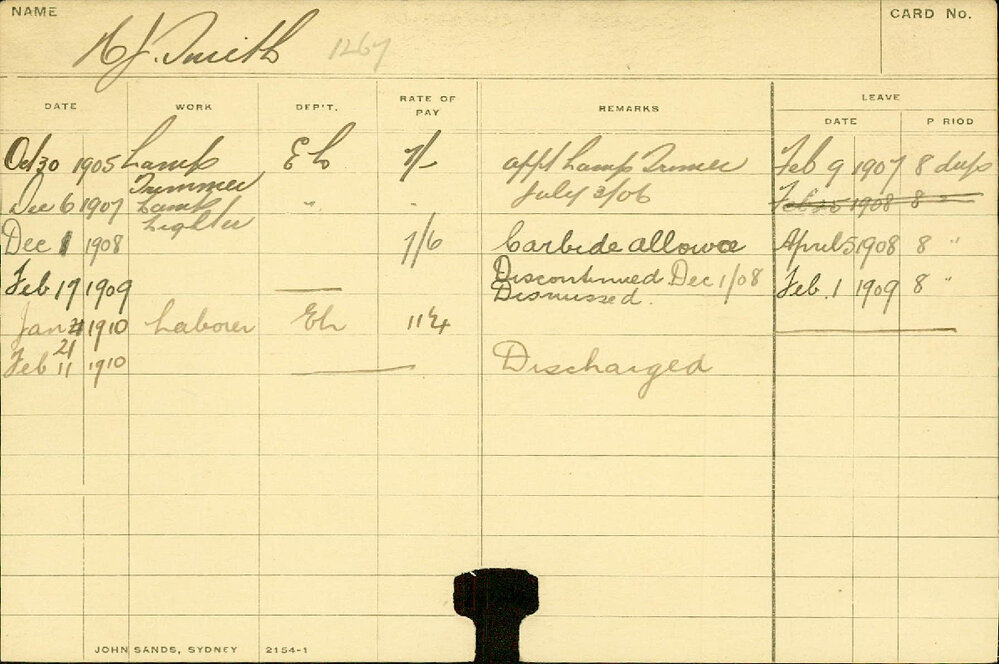 NAME
CARD No.
H J. Smith 1267
DATE WORK DEP'T. RATE OF PAY REMARKS LEAVE
DATE PERIOD
Oct 30 1905 Lamp E L 7/- appt Lamp Trimer Feb 9 1907 8 days
Trimmer July 3/06
Dec 6 1907 Lamp " " Feb 25 1908 8 "
Lighter
Dec 1 1908 7/6 Carbide allowce April 5 1908 8 "
Discontinued Dec 1/08
Feb 17 1909 Dismissed. Feb. 1 1909 8 "
Jan 1910 Laborer EL 11¼
21
Feb 11 1910 Discharged
JOHN SANDS, SYDNEY 2154-1